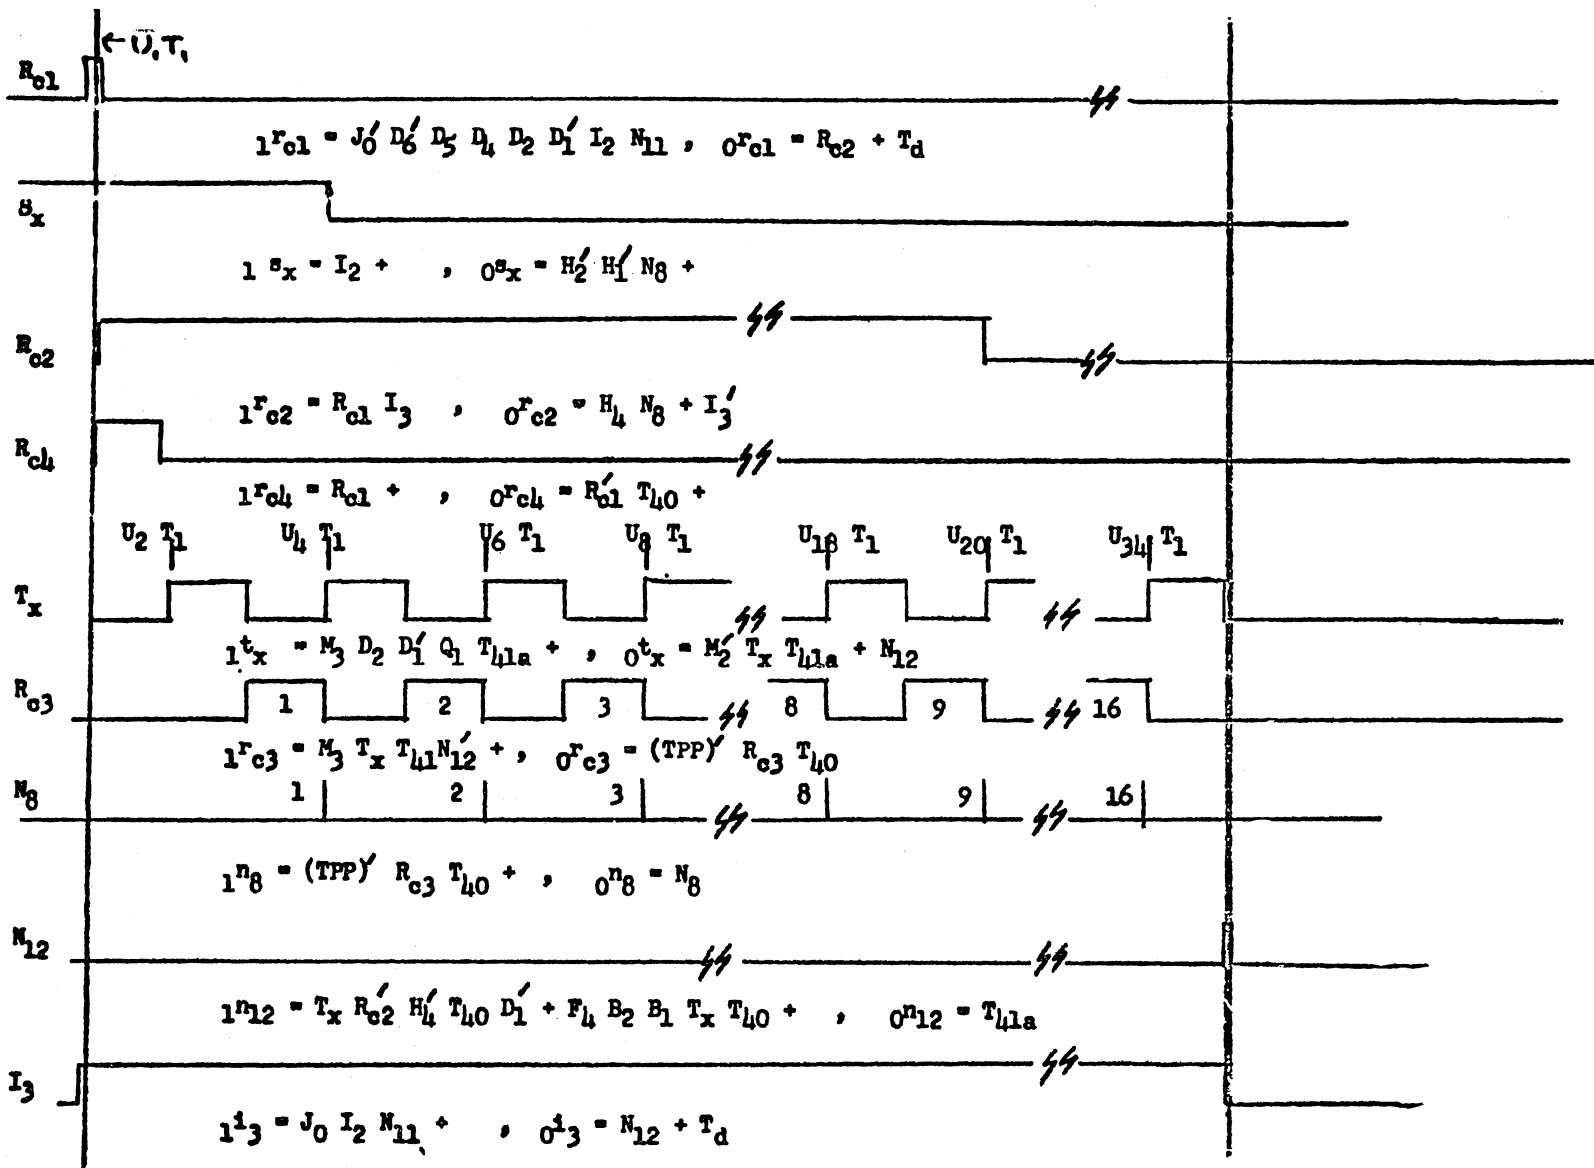 ← U₁T₁
R_c1
₁r_c1 = J₀′ D₆′ D₅ D₄ D₂ D₁′ I₂ N₁₁ , ₀r_c1 = R_c2 + T_d
S_x
₁s_x = I₂ + , ₀s_x = H₂′ H₁′ N₈ +
R_c2
₁r_c2 = R_c1 I₃ , ₀r_c2 = H₄ N₈ + I₃′
R_c4
₁r_c4 = R_c1 + , ₀r_c4 = R_c1′ T₄₀ +
U₂ T₁ U₄ T₁ U₆ T₁ U₈ T₁ U₁₈ T₁ U₂₀ T₁ U₃₄ T₁
T_x
₁t_x = M₃ D₂ D₁′ Q₁ T₄₁ₐ + , ₀t_x = M₂′ T_x T₄₁ₐ + N₁₂
R_c3 1 2 3 8 9 16
₁r_c3 = M₃ T_x T₄₁N₁₂′ + , ₀r_c3 = (TPP)′ R_c3 T₄₀
N₈ 1 2 3 8 9 16
₁n₈ = (TPP)′ R_c3 T₄₀ + , ₀n₈ = N₈
N₁₂
₁n₁₂ = T_x R_c2′ H₄′ T₄₀ D₁′ + F₄ B₂ B₁ T_x T₄₀ + , ₀n₁₂ = T₄₁ₐ
I₃
₁i₃ = J₀ I₂ N₁₁ + , ₀i₃ = N₁₂ + T_d